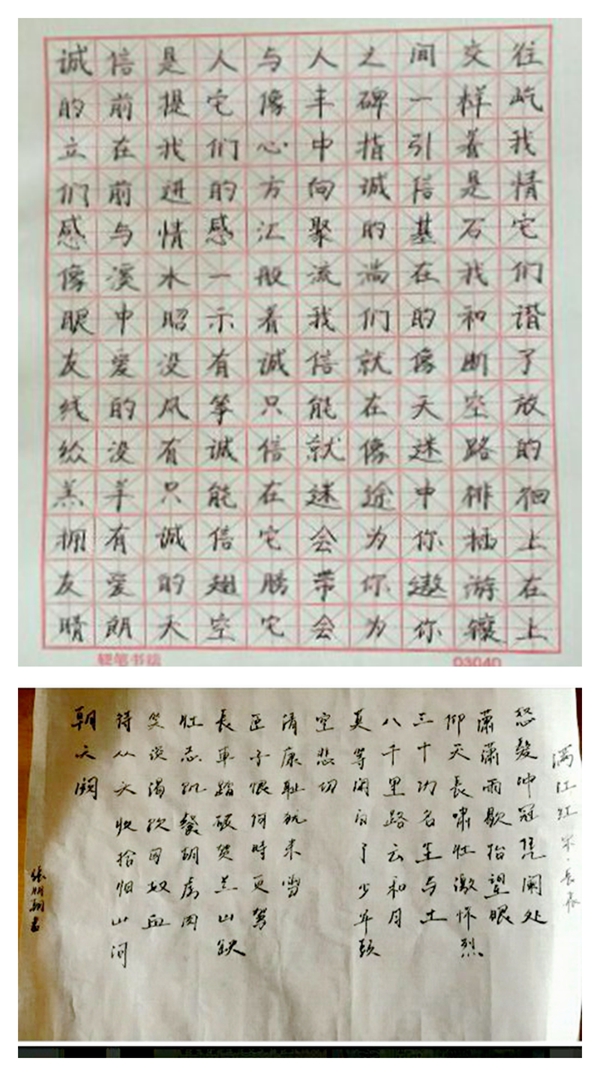 诚信是人与人之间交往
的前提它像丰碑一样屹
立在我们心中指引着我
们前进的方向诚信是情
感与情感汇聚的基石它
像溪水一般流淌在我们
眼中昭示着我们的和谐
友爱没有诚信就像断了
线的风筝只能在天空放
纵没有诚信就像迷路的
羔羊只能在迷途中徘徊
拥有诚信它会为你插上
友爱的翅膀带你遨游在
晴朗天空它会为你镶上
硬笔书法 0304D
满江红 宋·
怒髮冲冠凭阑处
潇潇雨歇抬望眼
仰天長啸壮激怀烈
三十功名尘与土
八千里路云和月
莫等闲白了少年头
空悲切
清康耻犹未
臣子恨何時驾
長車踏破贺兰山缺
壮志飢餐胡虏肉
笑谈渴饮匈奴血
待从头收拾旧山河
朝天阙